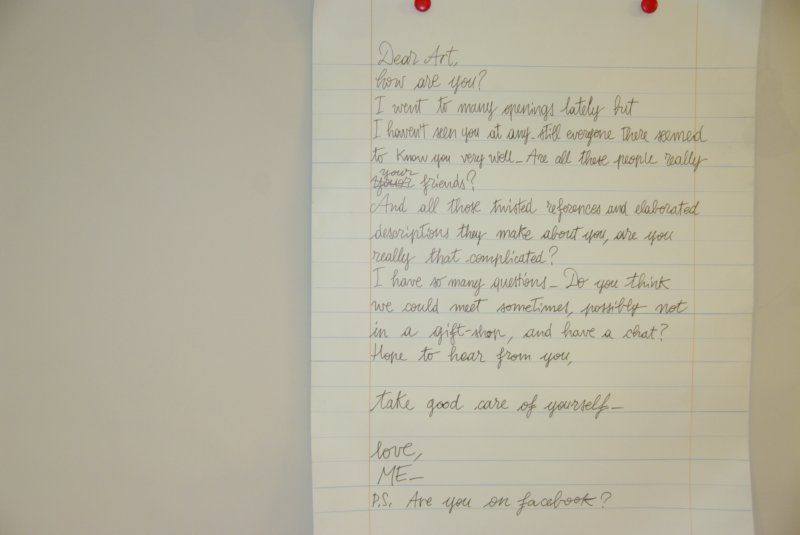 Dear Art,
how are you?
I went to many openings lately but
I haven't seen you at any_ still everyone there seemed
to know you very well_ Are all these people really
your friends?
And all those twisted references and elaborated
descriptions they make about you, are you
really that complicated?
I have so many questions_ Do you think
we could meet sometimes, possibly not
in a gift-shop, and have a chat?
Hope to hear from you,
take good care of yourself_
love,
ME_
P.S. Are you on facebook?